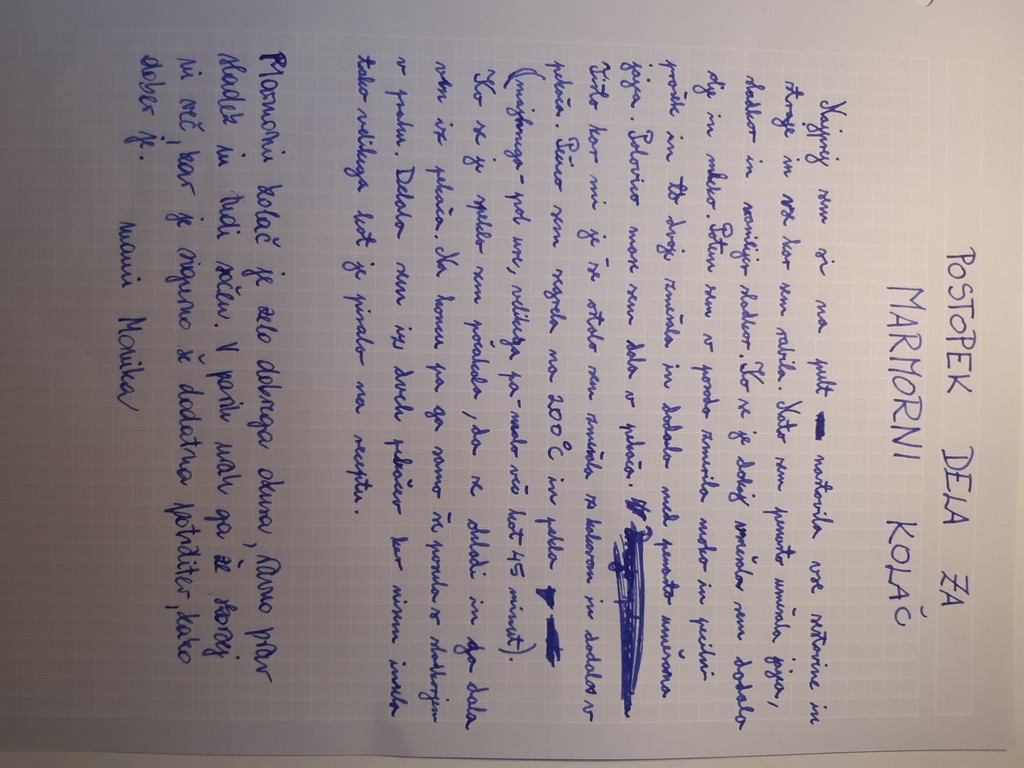 POSTOPEK DELA ZA
MARMORNI KOLAČ
Najprej sem si na pult natovila vse sestavine in
stvari in vse kar sem rabila. Nato sem penasto umešala jajca,
sladkor in vanilijev sladkor. Ko se je dobro zmešalo sem dodala
olje in mleko. Potem sem v posodo zmešala moko in pecilni
prašek in to dvoje zmešala in dodala med penasto umešana
jajca. Polovico mase sem dala v pekač.
Tisto kar mi je še ostalo sem zmešala s kakavom in dodala v
pekač. Pečico sem segrela na 200°C in pekla
(majhnega - pol ure, velikega pa - malo več kot 45 minut).
Ko se je speklo sem počakala, da se ohladi in ga dala
ven iz pekača. Na koncu pa ga samo še posula s sladkorjem
v prahu. Delala sem iz dveh pekačev ker nisem imela
tako velikega kot je pisalo na receptu.
Marmorni kolač je zelo dobrega okusa, ravno prav
sladek in tudi sočen. V peki nah ga že skoraj
ni več, kar je sigurno še dodatna potrditev, kako
dober je.
mami Monika